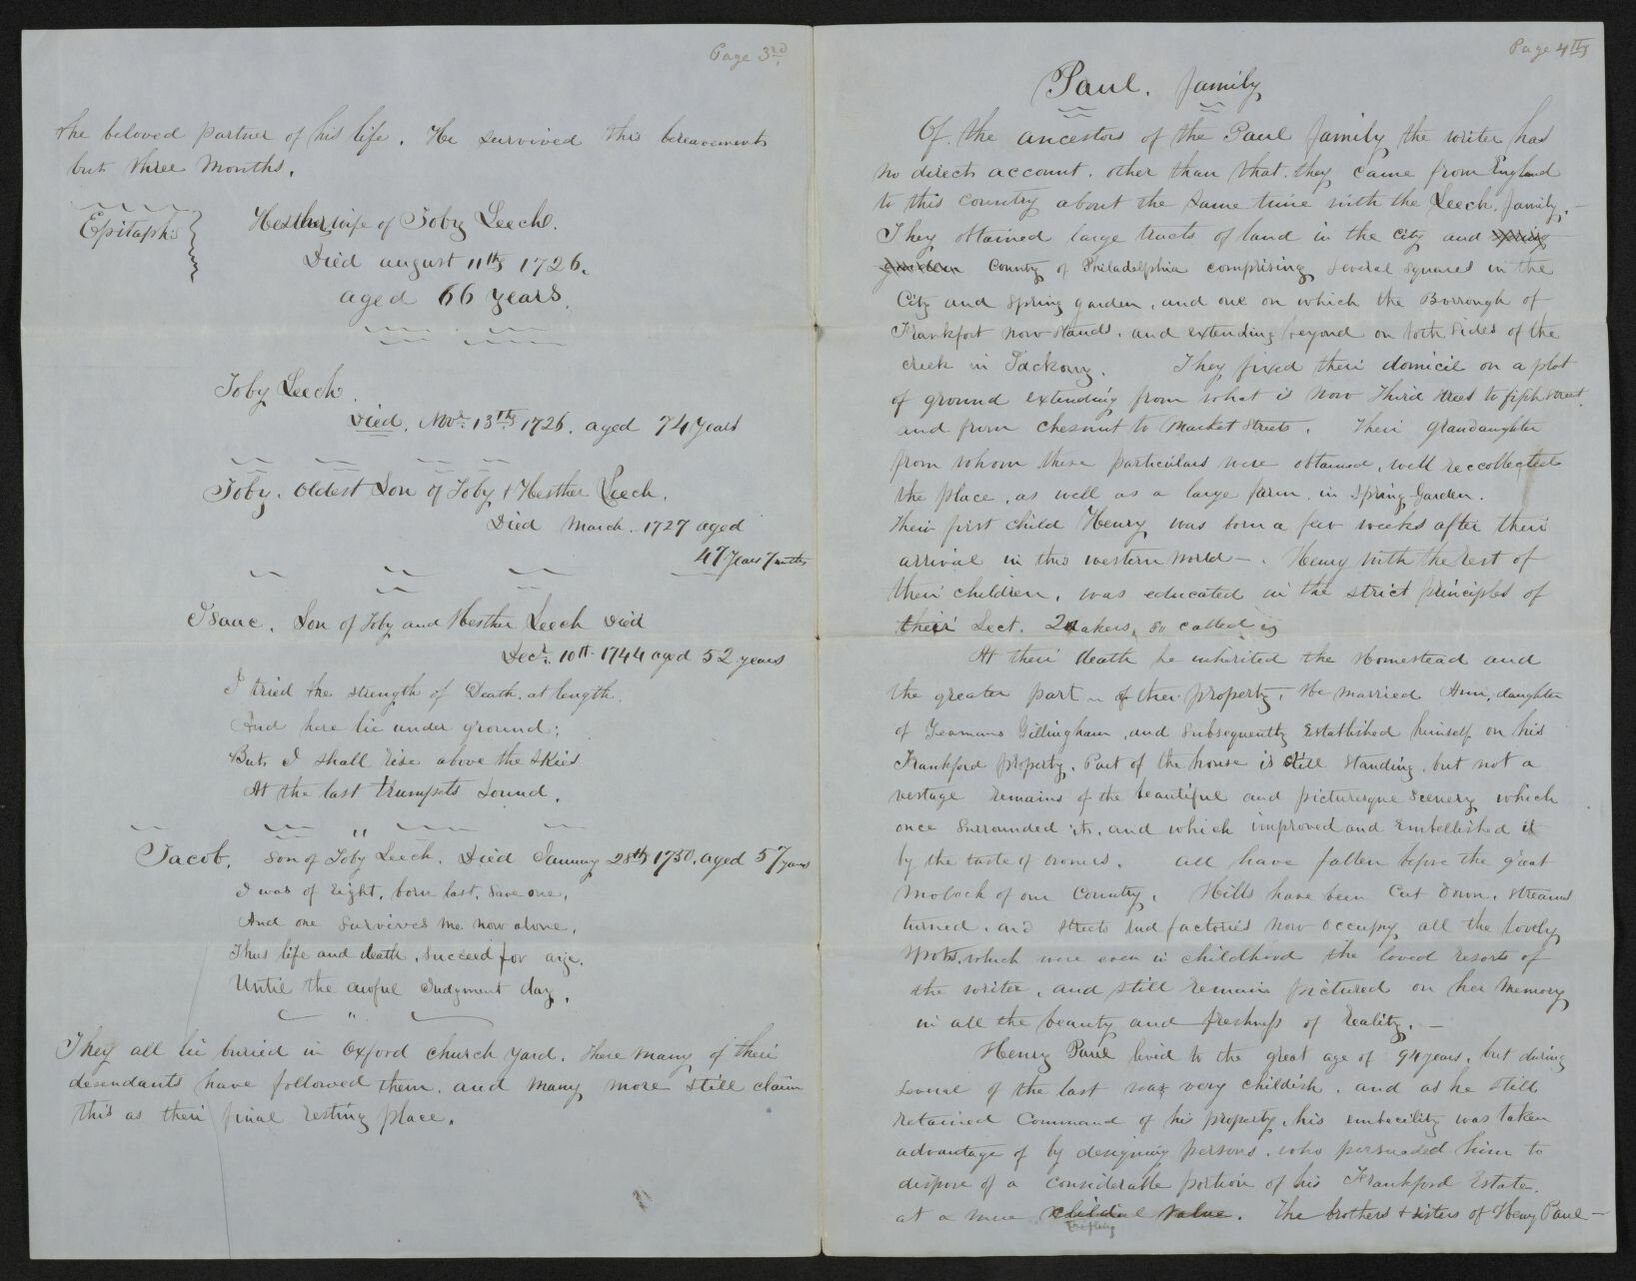 Page 3rd
the beloved partner of his life. He survived this bereavement
but three Months.
Epitaphs
Hesther wife of Toby Leech.
Died august 11th 1726.
aged 66 years.
Toby Leech.
Died, Novr. 13th 1726. aged 74 Years
Toby, Oldest Son of Toby & Hesther Leech.
Died March. 1727 aged
47 Years 7 mths
Isaac. Son of Toby and Hesther Leech Died
Decr. 10th 1744 aged 52 years
I tried the strength of Death, at length.
And here lie under ground;
But, I shall rise above the Skies
At the last trumpets Sound.
Jacob. Son of Toby Leech. Died January 28th 1750, aged 57 years
I was of eight, born last, Save one,
And one Survives me now alone,
Thus life and death, Succeed for aye.
Until the awful Judgment day.
They all lie buried in Oxford church Yard. there many of their
desendants have followed them, and many more still claim
this as their final resting place.
Page 4th
Paul. family
Of the ancestors of the Paul family the writer has
no direct account. other than that they came from England
to this Country about the same time with the Leech family. —
They obtained large tracts of land in the City and Spring
garden County of Philadelphia comprising Several Squares in the
City and Spring garden, and one on which the Borrough of
Frankfort now stands. and extending beyond on both Sides of the
creek in Tackony. They fixed their domicil on a plot
of ground extending from what is now Third Street to fifth Street
and from Chesnut to Market Streets. Their grandaughter
from whom these particulars were obtained, well reccollected
the place, as well as a large farm in Spring-Garden.
their first child Henry was born a few weeks after their
arrival in this western world —. Henry with the rest of
their children, was educated in the strict principles of
their Sect. Quakers, so called
At their death he inherited the Homestead and
the greater part of their property, He married Ann, daughter
of Yeamans Gillingham, and Subsequently Established himself on his
Frankford property. Part of the house is still standing, but not a
vestage remains of the beautiful and picturesque Scenery which
once Surrounded it, and which improved and Embellished it
by the taste of owners. all have fallen before the great
Moloch of our Country. Hills have been Cut down, Streams
turned, and Streets and factories now occupy all the lovely
spots, which were even in childhood the loved resorts of
the writer, and still remain pictured on her Memory
in all the beauty and freshness of reality. —
Henry Paul lived to the great age of 94 years, but during
Several of the last was very childish. and as he still
retained Command of his property, his imbecility was taken
advantage of by designing persons, who persuaded him to
dispose of a considerable portion of his Frankford Estate.
at a mere value. The brothers & sisters of Henry Paul —
trifling